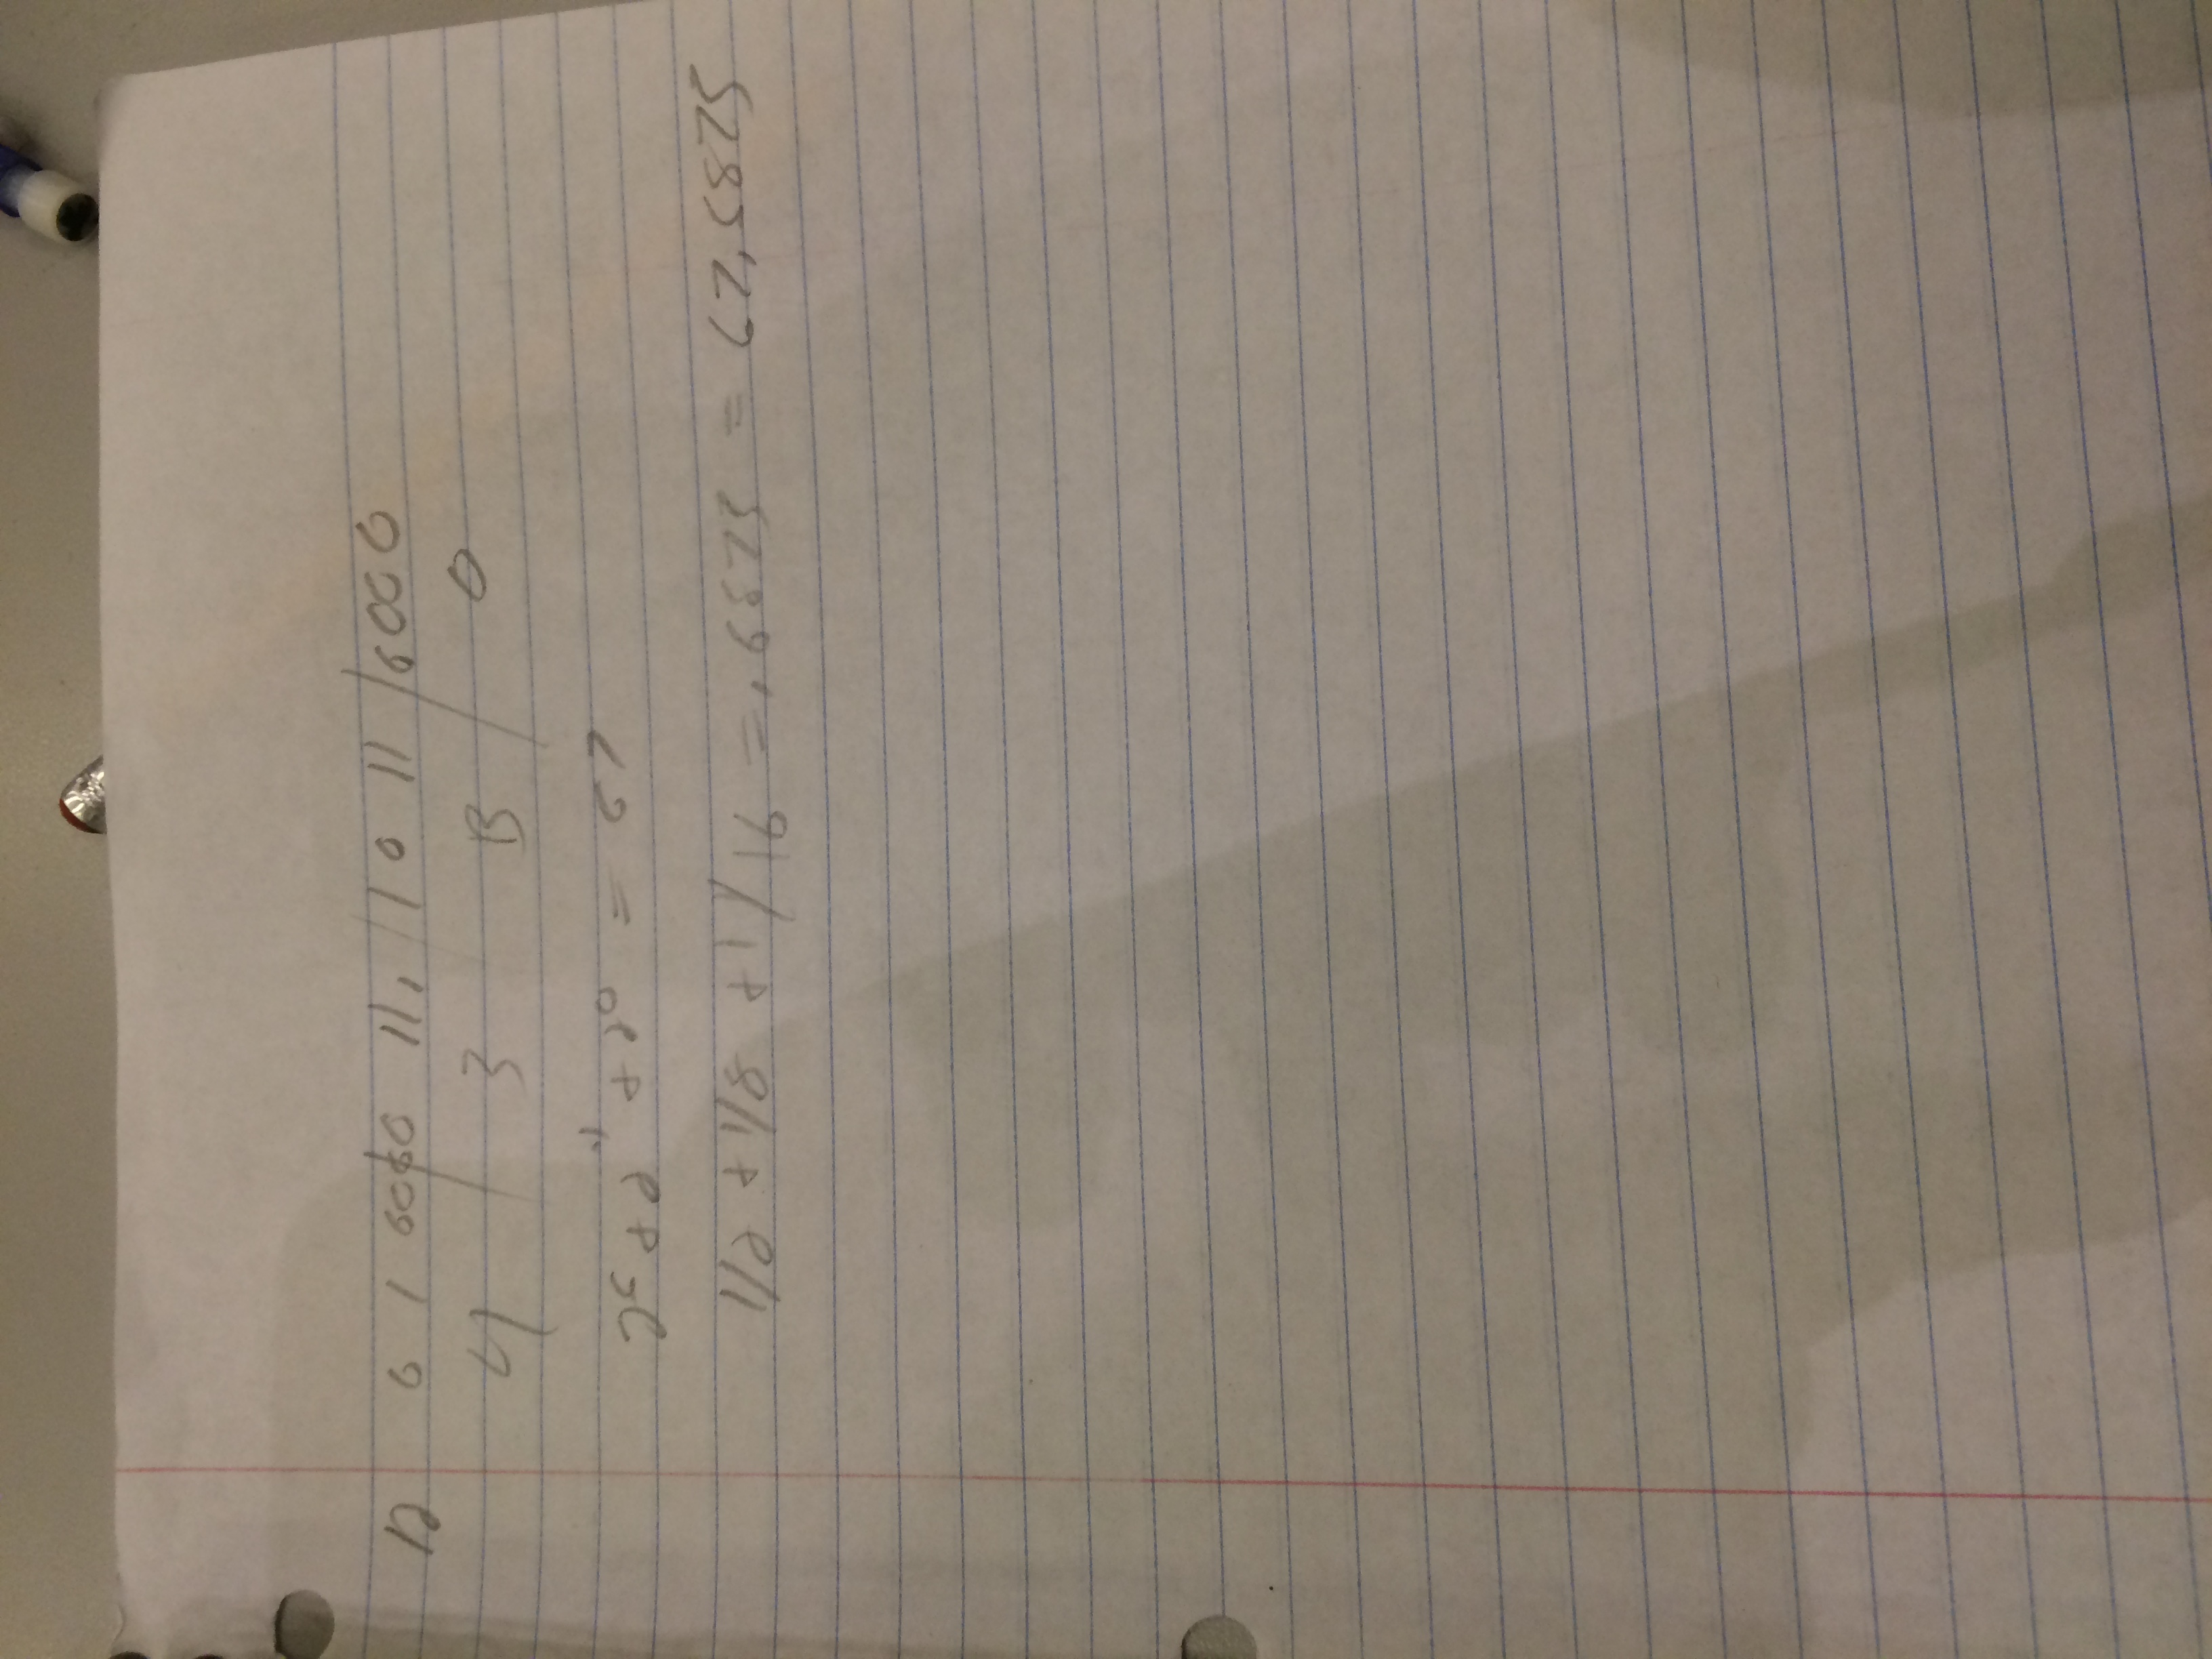 12 0 1 0000 11. 1 0 11 0000
4 3 B 0
2⁶ + 2¹ + 2⁰ = 67
1/2 + 1/8 + 1/16 = .6875 = 67.6875